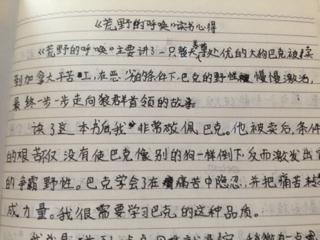 《荒野的呼唤》读书心得
《荒野的呼唤》主要讲了一只养尊处优的大狗巴克被卖
到加拿大干苦工,在恶劣的条件下,巴克的野性慢慢激活,
最终一步一步走向狼群首领的故事
读了这一本书后我非常敬佩巴克。他被卖后,条件
的艰苦仅没有使巴克像别的狗一样倒下,反而激发出了
的争霸野性。巴克学会了在痛苦中隐忍,并把痛苦转
成力量。我很需要学习巴克的这种品质。